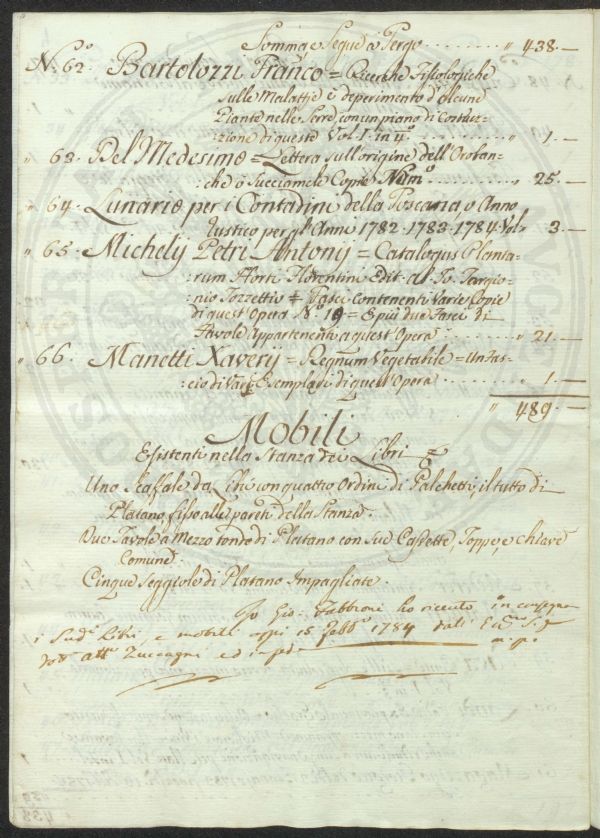 Somma, e Segue a Tergo ........ " 438.—
N.º 62. Bartolozzi Franco = Ricerche Fisiologiche
sulle Malattie e deperimento d'alcune
Piante nelle Serre, con un piano di Costru=
zione di queste Vol. I. in 4º ........ " 1.—
" 63. Del Medesimo = Lettera sull'origine dell'Oroban=
:che o Succiamele Copie Numº ........ " 25.—
" 64. Lunario per i Contadini della Toscana, o Anno
Rustico per gl'Anni 1782. 1783. 1784. Vol. " 3.—
" 65. Michelij Petri Antonij = Catalogus Planta=
:rum Horti Florentini Edit. al. Jo. Targio=
:nio Tozzettio = Fasci contenenti Varie Copie
di quest'Opera Nº 19 = E più due Fasci di
Tavole Appartenenti a quest'Opera ........ " 21.—
" 66. Manetti Xaverij = Regnum Vegetabile = Un Fas=
:cio di Varj Esemplari di quest'Opera ........ " 1.—
" 489.—
Mobili
Esistenti nella Stanza dei Libri =
Uno Scaffale da Libri con quattro Ordini di Palchetti, il tutto di
Platano fisso alle pareti della Stanza.
Due Tavole a Mezzo tondo di Platano con Sue Cassette, Toppe, e chiave
Comune.
Cinque Seggiole di Platano Impagliate.
Io Gio: Fabbroni ho ricevuto in consegna
i Sudi Libri, e mobili ogni 15 Febbº 1784 dall' Eccmo Sig
Dotr Attº Zuccagni ed in fede m. p.